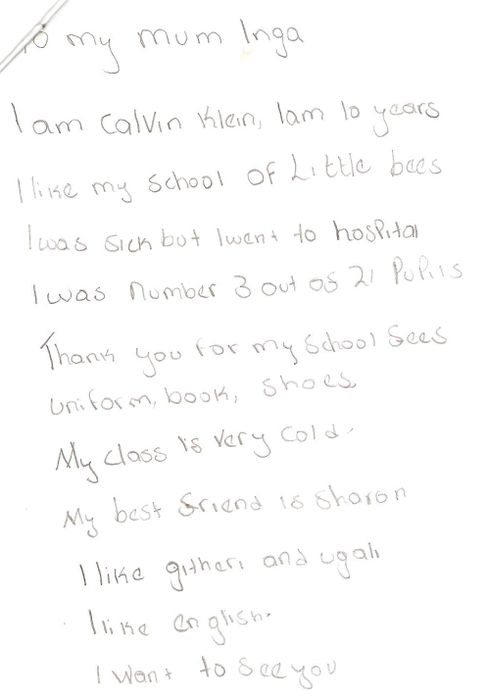 To my mum Inga
I am Calvin Klein, I am 10 years
I like my school of Little bees
I was sick but I went to hospital
I was number 3 out of 21 Pupils
Thank you for my school fees
uniform, book, shoes
My class is very cold.
My best friend is sharon
I like githeri and ugali
I like english.
I want to see you